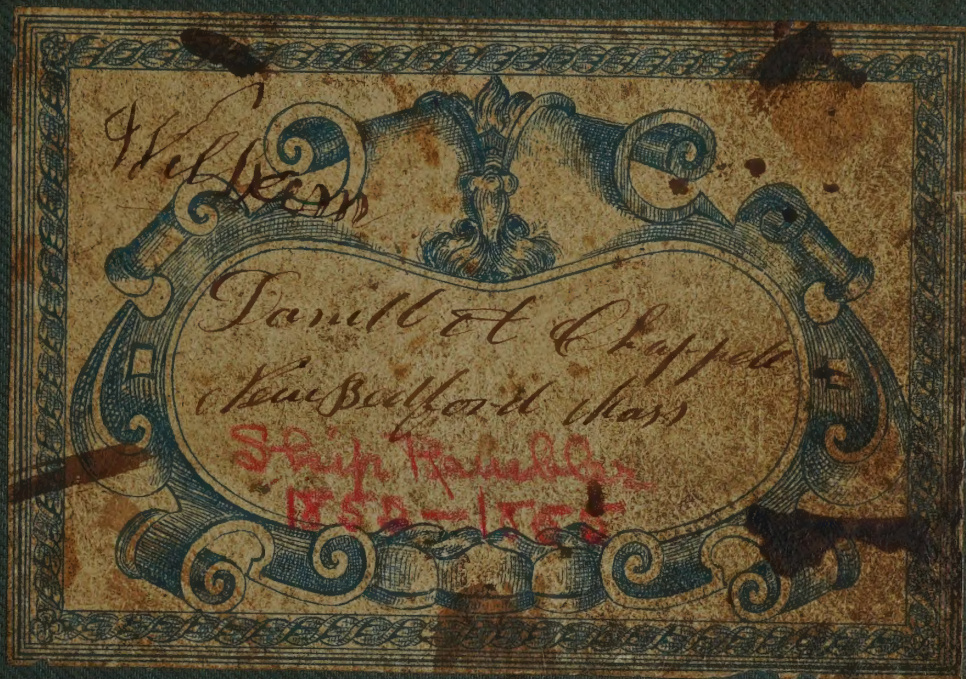 William
Daniell A Chappell
New Bedford Mass
Ship Rambler